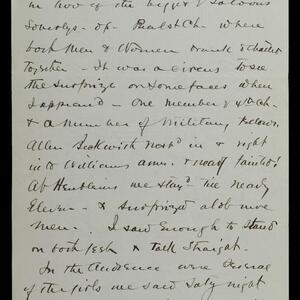 in two of the biggest Saloons
where
both Men & Women drank & chatted
together - It was a circus to see
the surprize on some faces when
I appeared - One member of
& a number of Military fellows.
Allen Beckwith in & right
into Williams arms - & nearly fainted!
At we stayed till nearly
Eleven - & surprized a lot more
men. I saw enough to stand
on both feet & talk straight.
In the Audience were several
of the girls we saw Saty night